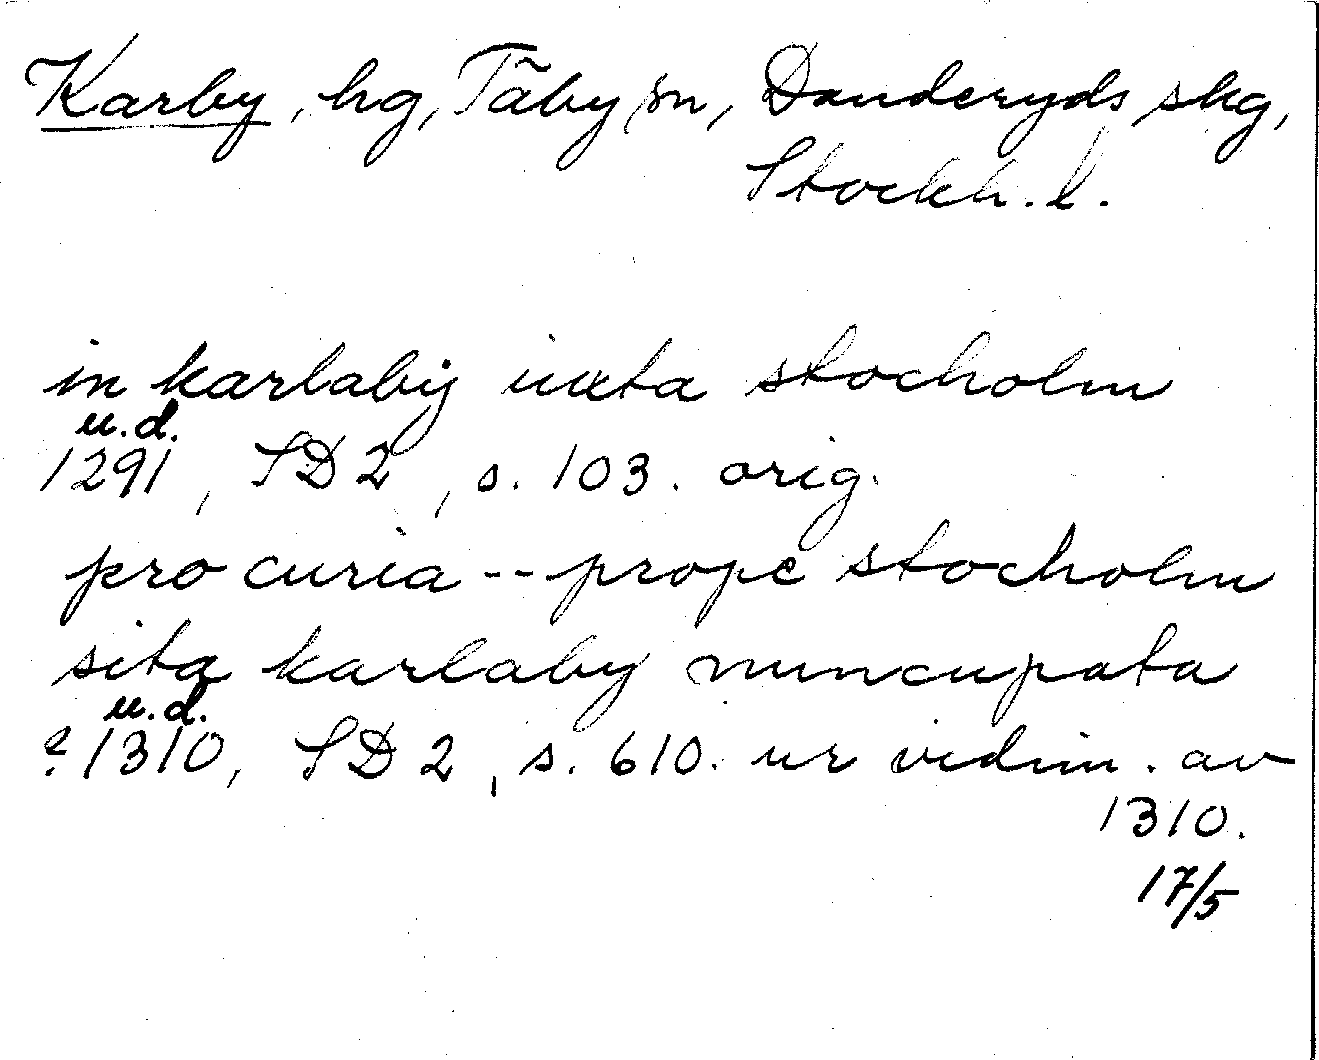 Karby, hg, Täby sn, Danderyds skg,
Stockh. l.
in karlaby iuxta stocholm
u.d.
1291, SD 2, s. 103. orig.
pro curia -- prope stocholm
sita karlaby nuncupata
u.d.
? 1310, SD 2, s. 610. ur vidim. av
1310.
17/5